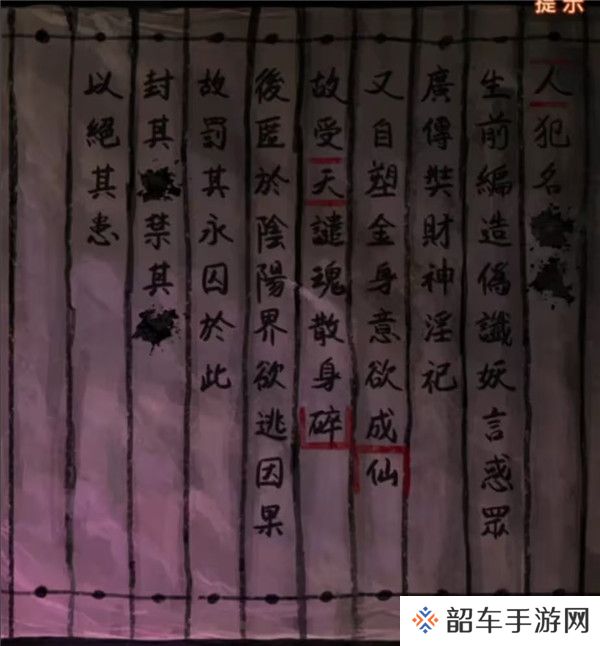 提示
人犯名
生前編造僞讖妖言惑眾
廣傳奘財神淫祀
又自塑金身意欲成仙
故受天譴魂散身碎
後匿於陰陽界欲逃因果
故罰其永囚於此
封其禁其
以絕其患
韶车手游网